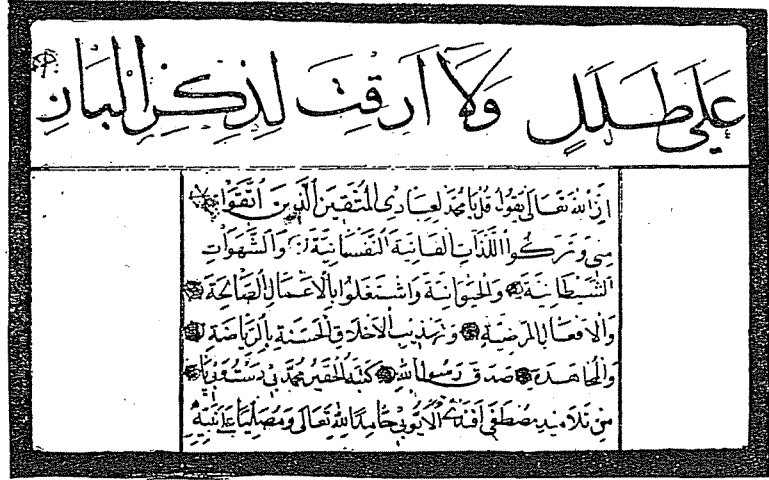 عَلَى طَلَلٍ وَلَا اَرِقْتَ لِذِكْرِ الْبَانِ
اِنَّ اللهَ تَعَالَى يَقُولُ قُلْ يَا مُحَمَّدُ لِعِبَادِىَ الْمُتَّقِينَ الَّذِينَ اتَّقَوْا
مِنِّى وَتَرَكُوا اللَّذَّاتِ الْفَانِيَةَ النَّفْسَانِيَّةَ وَالشَّهَوَاتِ
الشَّيْطَانِيَّةَ وَالْحَيَوَانِيَّةَ وَاشْتَغَلُوا بِالْاَعْمَالِ الصَّالِحَةِ
وَالْاَفْعَالِ الْمَرْضِيَّةِ وَتَهْذِيبِ الْاَخْلَاقِ الْحَسَنَةِ بِالرِّيَاضَةِ
وَالْمُجَاهَدَةِ صَدَقَ رَسُولُ اللهِ كَتَبَهُ الْحَقِيرُ مُحَمَّدْ
مِنْ تَلَامِيذِ مُصْطَفَى الْاَيُّوبِىِّ حَامِدًا لِلّٰهِ تَعَالَى وَمُصَلِّيًا عَلَى نَبِيِّهِ